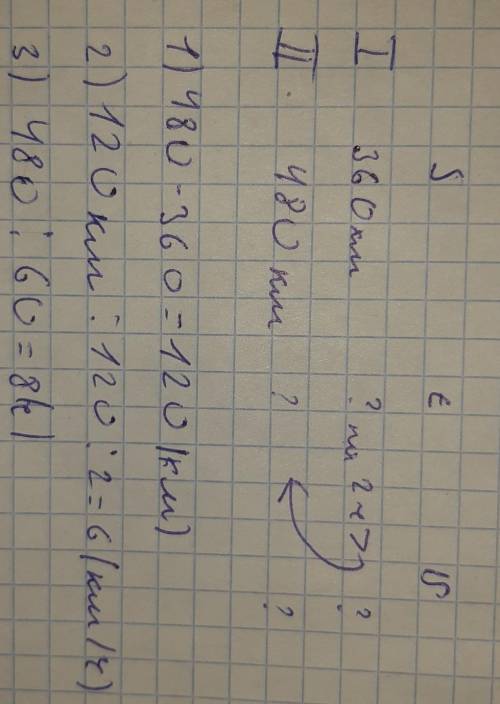 S t v
I 360 км ? на 2 ч > ?
II 480 км ? ?
1) 480 - 360 = 120 (км)
2) 120 км : 120 : 2 = 6 (км/ч)
3) 480 : 60 = 8